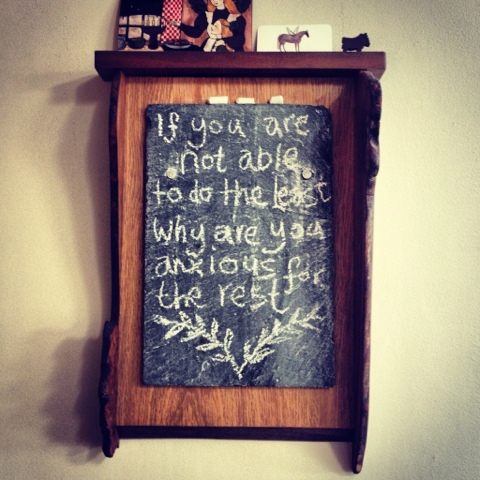 If you are
not able
to do the least
why are you
anxious for
the rest